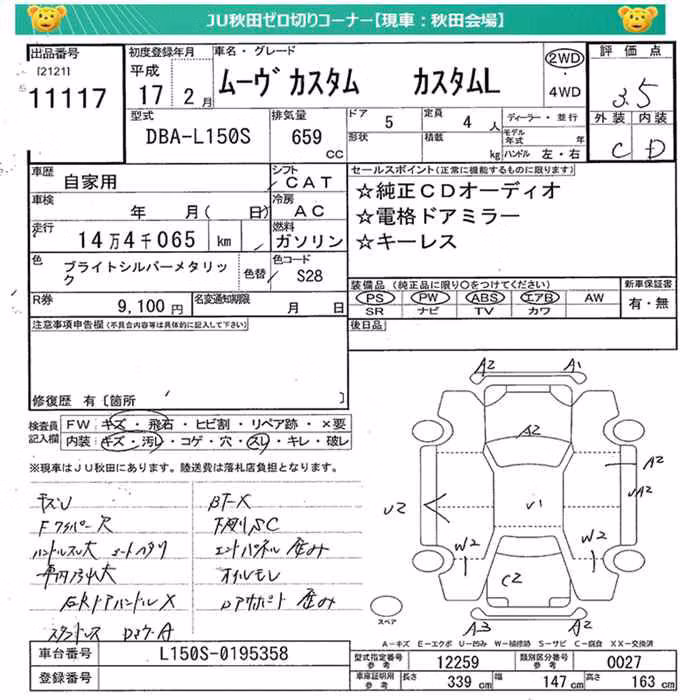 JU秋田ゼロ切りコーナー【現車：秋田会場】
出品番号 初度登録年月 車名・グレード 評価点
[2121] 平成 ムーヴ カスタム カスタムL 2WD
11117 17 2月 ・4WD 3.5
型式 排気量 ドア 5 定員 4人 ディーラー・並行 外装 内装
DBA-L150S 659 CC 形状 積載 kg モデル年式 年 ハンドル 左・右 C D
車歴 自家用 シフト CAT セールスポイント(正常に機能するものに限ります)
車検 年 月( 日) 冷房 AC ☆純正CDオーディオ
走行 14万4千065 km 燃料 ガソリン ☆電格ドアミラー
☆キーレス
色 ブライトシルバーメタリック 色替 色コード S28
装備品 (純正品に限り○をつけてください) 新車保証書
PS PW ABS エアB AW 有・無
SR ナビ TV カワ
R券 9,100円 名変通知期限 月 日
注意事項申告欄(不具合内容等は具体的に記入して下さい) 後日品
修復歴 有〔箇所 〕
検査員記入欄 FW：キズ・飛石・ヒビ割・リペア跡・×要
内装：キズ・汚レ・コゲ・穴・スレ・キレ・破レ
※現車はJU秋田にあります。陸送費は落札店負担となります。
A2 A1
A2
A2
U2 V1 UA2
W2 W2
C2
A3 A2
キズU BT-X
Fワイパー欠 下廻りSC
ハンドルスレ大 シートヘタリ エンドパネル 歪み
車内汚れ大 オイルモレ
右RドアハンドルX コアサポート 歪み
スペア
A－キズ E－エクボ U－凹み W－補修跡 S－サビ C－腐食 XX－交換済
車台番号 L150S-0195358 型式指定番号 参考 12259 類別区分番号 参考 0027
登録番号 車庫証明用 参考 長さ 339 cm 幅 147 cm 高さ 163 cm